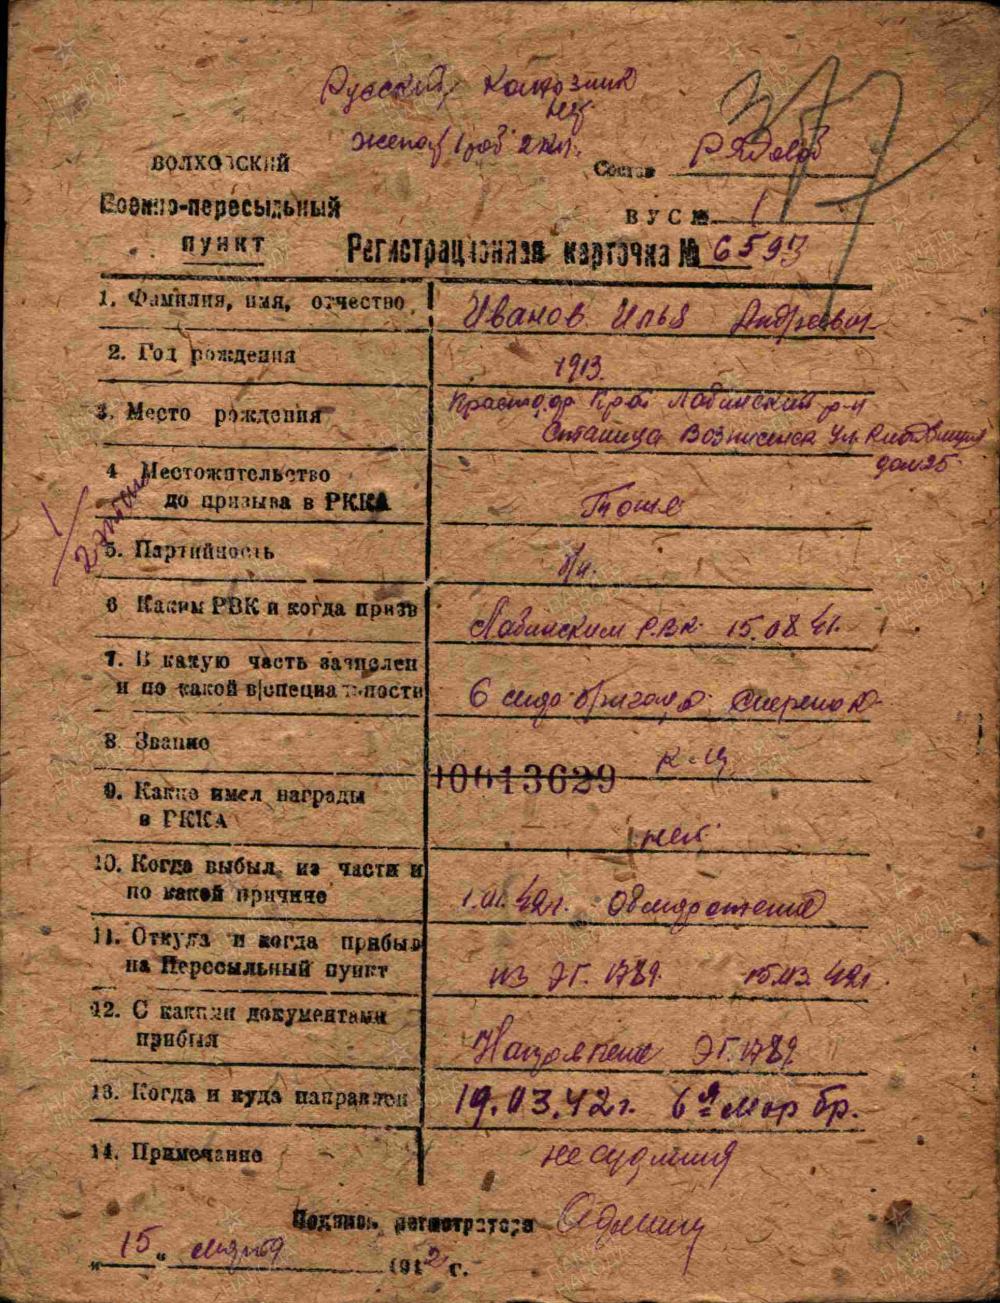 Русский колхозник
женат 1 раб 2 кл.
ВОЛХОВСКИЙ
Состав рядовой
Военно-пересыльный
ВУС № 1
пункт
Регистрационная карточка № 6597
1. Фамилия, имя, отчество Иванов Илья Андреевич
2. Год рождения 1913.
3. Место рождения Краснодар Край Лабинский р-н
Станица Вознисенск Ул.
дом 25
4 Местожительство
до призыва в РККА Тоже
1/2 этбат
5. Партийность б/п.
6 Каким РВК и когда призв Лабинским Р.В.К. 15.08.41.
7. В какую часть зачислен
и по какой в/специальности 6 бригада
8. Звание к-ц
00013629
9. Какие имел награды
в РККА нет
10. Когда выбыл из части и
по какой причине 1.01.42г. Обморожение
11. Откуда и когда прибыл
на Пересыльный пункт из ЭГ. 1782 15.03.42г
12. С какими документами
прибыл ЭГ. 1782
13. Когда и куда направлен 19.03.42г. 6я Мор бр.
14. Примечание не судимый
Подпись регистратора
„15“ марта 1942 г.